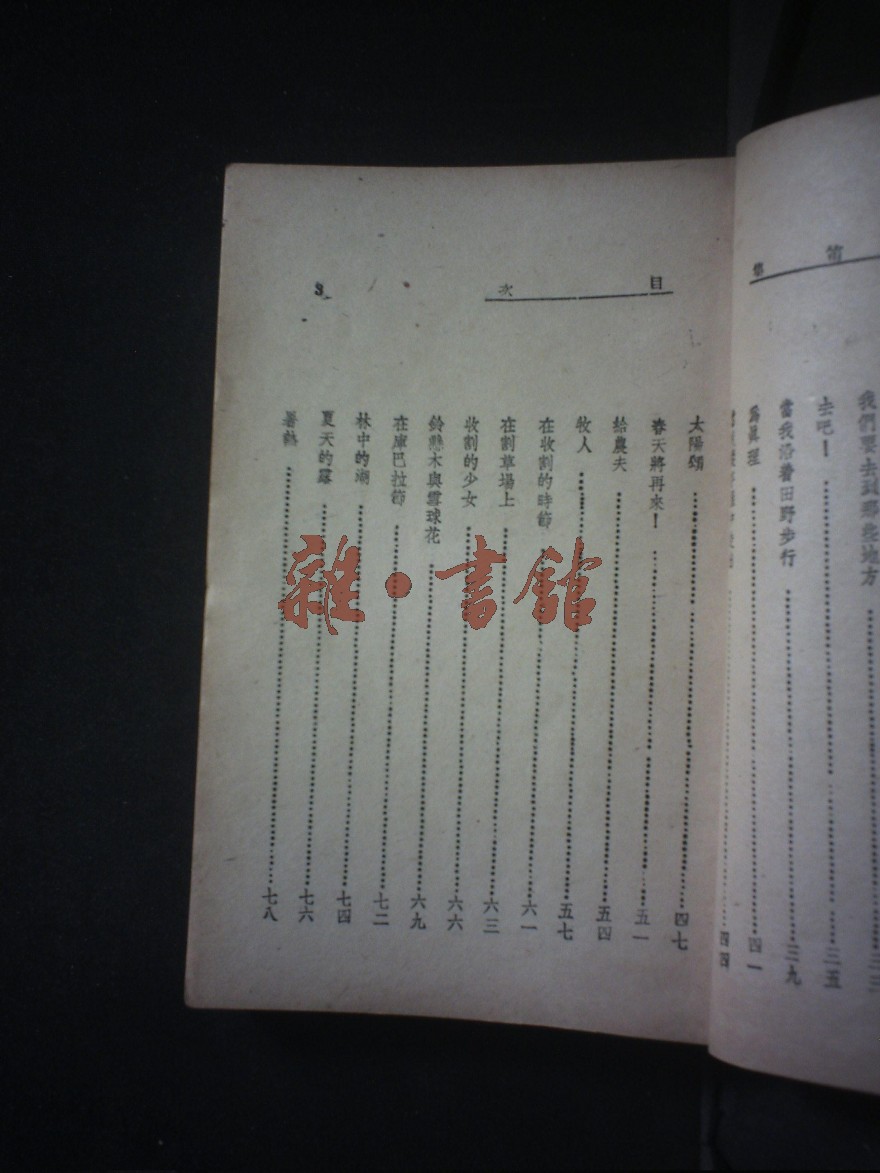 笛集
我們要去到那些地方……三三
去吧！……三五
當我沿着田野步行……三九
爲眞理……四一
……四四
目次 3
太陽頌……四七
春天將再來！……五一
給農夫……五四
牧人……五七
在收割的時節……六一
在割草場上……六三
收割的少女……六六
鈴懸木與雪球花……六九
在庫巴拉節……七二
林中的湖……七四
夏天的露……七六
暑熱……七八
雜·書館